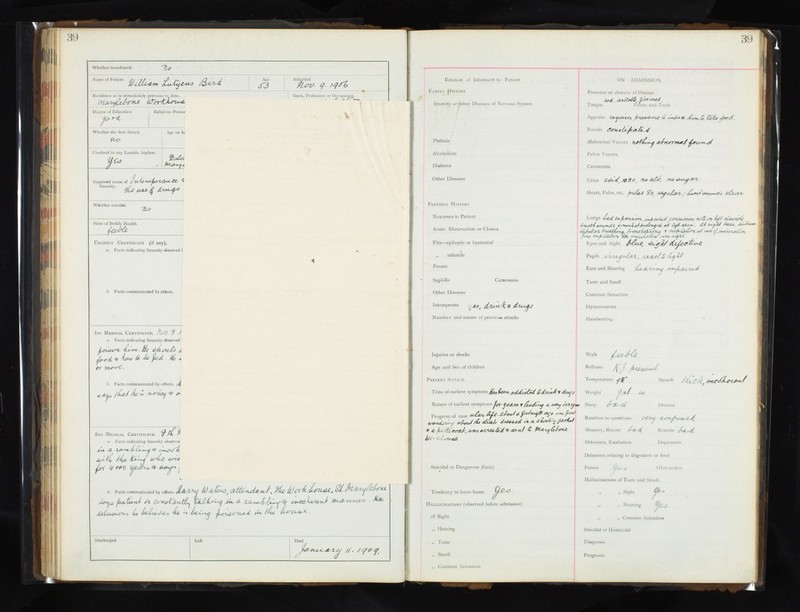 39
Whether transferred. no
Name of Patient William Lutyens Bird
Age 53
Admitted Nov. 9. 1906
Residence at or immediately previous to date.
Marylebone Workhouse
Rank, Profession or Occupation
Degree of Education good
Religious Persua
Whether the first Attack no
Age on
Confined in any Lunatic Asylum
yes
Supposed cause of Insanity. Intemperance &
the use of drugs
Whether suicidal. no
State of Bodily Health
feeble
Urgency Certificate (if any),
a. Facts indicating Insanity observed
b. Facts communicated by others.
1st Medical Certificate, Nov. 9
a. Facts indicating Insanity observed
poison him. He shouts
food & has to be fed. He
or move.
b. Facts communicated by others.
says that he is noisy &
2nd Medical Certificate.
a. Facts indicating Insanity observed
in a rambling & incoh
with the King who was
for 4000 years &
b. Facts communicated by others. Harry Waters, attendant, The Workhouse, St. Marylebone
says patient is constantly talking in a rambling & incoherent manner. Has
delusions he believes he is being poisoned in the house.
Discharged
Left
Died January 11. 1909.
39
Relation of Informant to Patient
Family History
Insanity or other Diseases of Nervous System
Phthisis
Alcoholism
Diabetes
Other Diseases
Previous History
Neuroses in Patient
Acute Rheumatism or Chorea
Fits—epileptic or hysterical
„ infantile
Fevers
Syphilis Carcinoma
Other Diseases
Intemperate yes, drink & drugs
Number and nature of previous attacks
Injuries or shocks
Age and Sex of children
Present Attack.
Time of earliest symptoms Has been addicted to drink & drugs
Nature of earliest symptoms for years & leading a very irregular
Progress of case life. About a fortnight ago was found
wandering about the streets dressed in a shooting jacket
& a petticoat, was arrested & sent to Marylebone
Workhouse
Suicidal or Dangerous (how)
Tendency to leave house yes.
Hallucinations (observed before admission)
of Sight
„ Hearing
„ Taste
„ Smell
„ Common Sensation
ON ADMISSION.
Presence or absence of Disease
Tongue red, Palate and Teeth
Appetite requires pressure to induce him to take food.
Bowels constipated
Abdominal Viscera nothing abnormal found
Pelvic Viscera
Catamenia
Urine acid, 1020, no alb. no sugar.
Heart, Pulse, etc. pulse 80, regular; heart sounds clear
Lungs
Eyes and Sight blue, sight defective
Pupils irregular, react to light
Ears and Hearing hearing impaired
Taste and Smell
Common Sensation
Dynamometer
Handwriting
Walk feeble
Reflexes K.J. present
Temperature 98° Speech thick, incoherent
Weight
Sleep bad Dreams
Reaction to questions very confused
Memory, Recent bad Remote bad
Delusions, Exaltation Depression
Delusions relating to Digestion or food
Poison yes
Hallucinations of Taste and Smell
„ „ Sight yes
„ „ Hearing yes
„ „ Common Sensation
Suicidal or Homicidal
Diagnosis
Prognosis